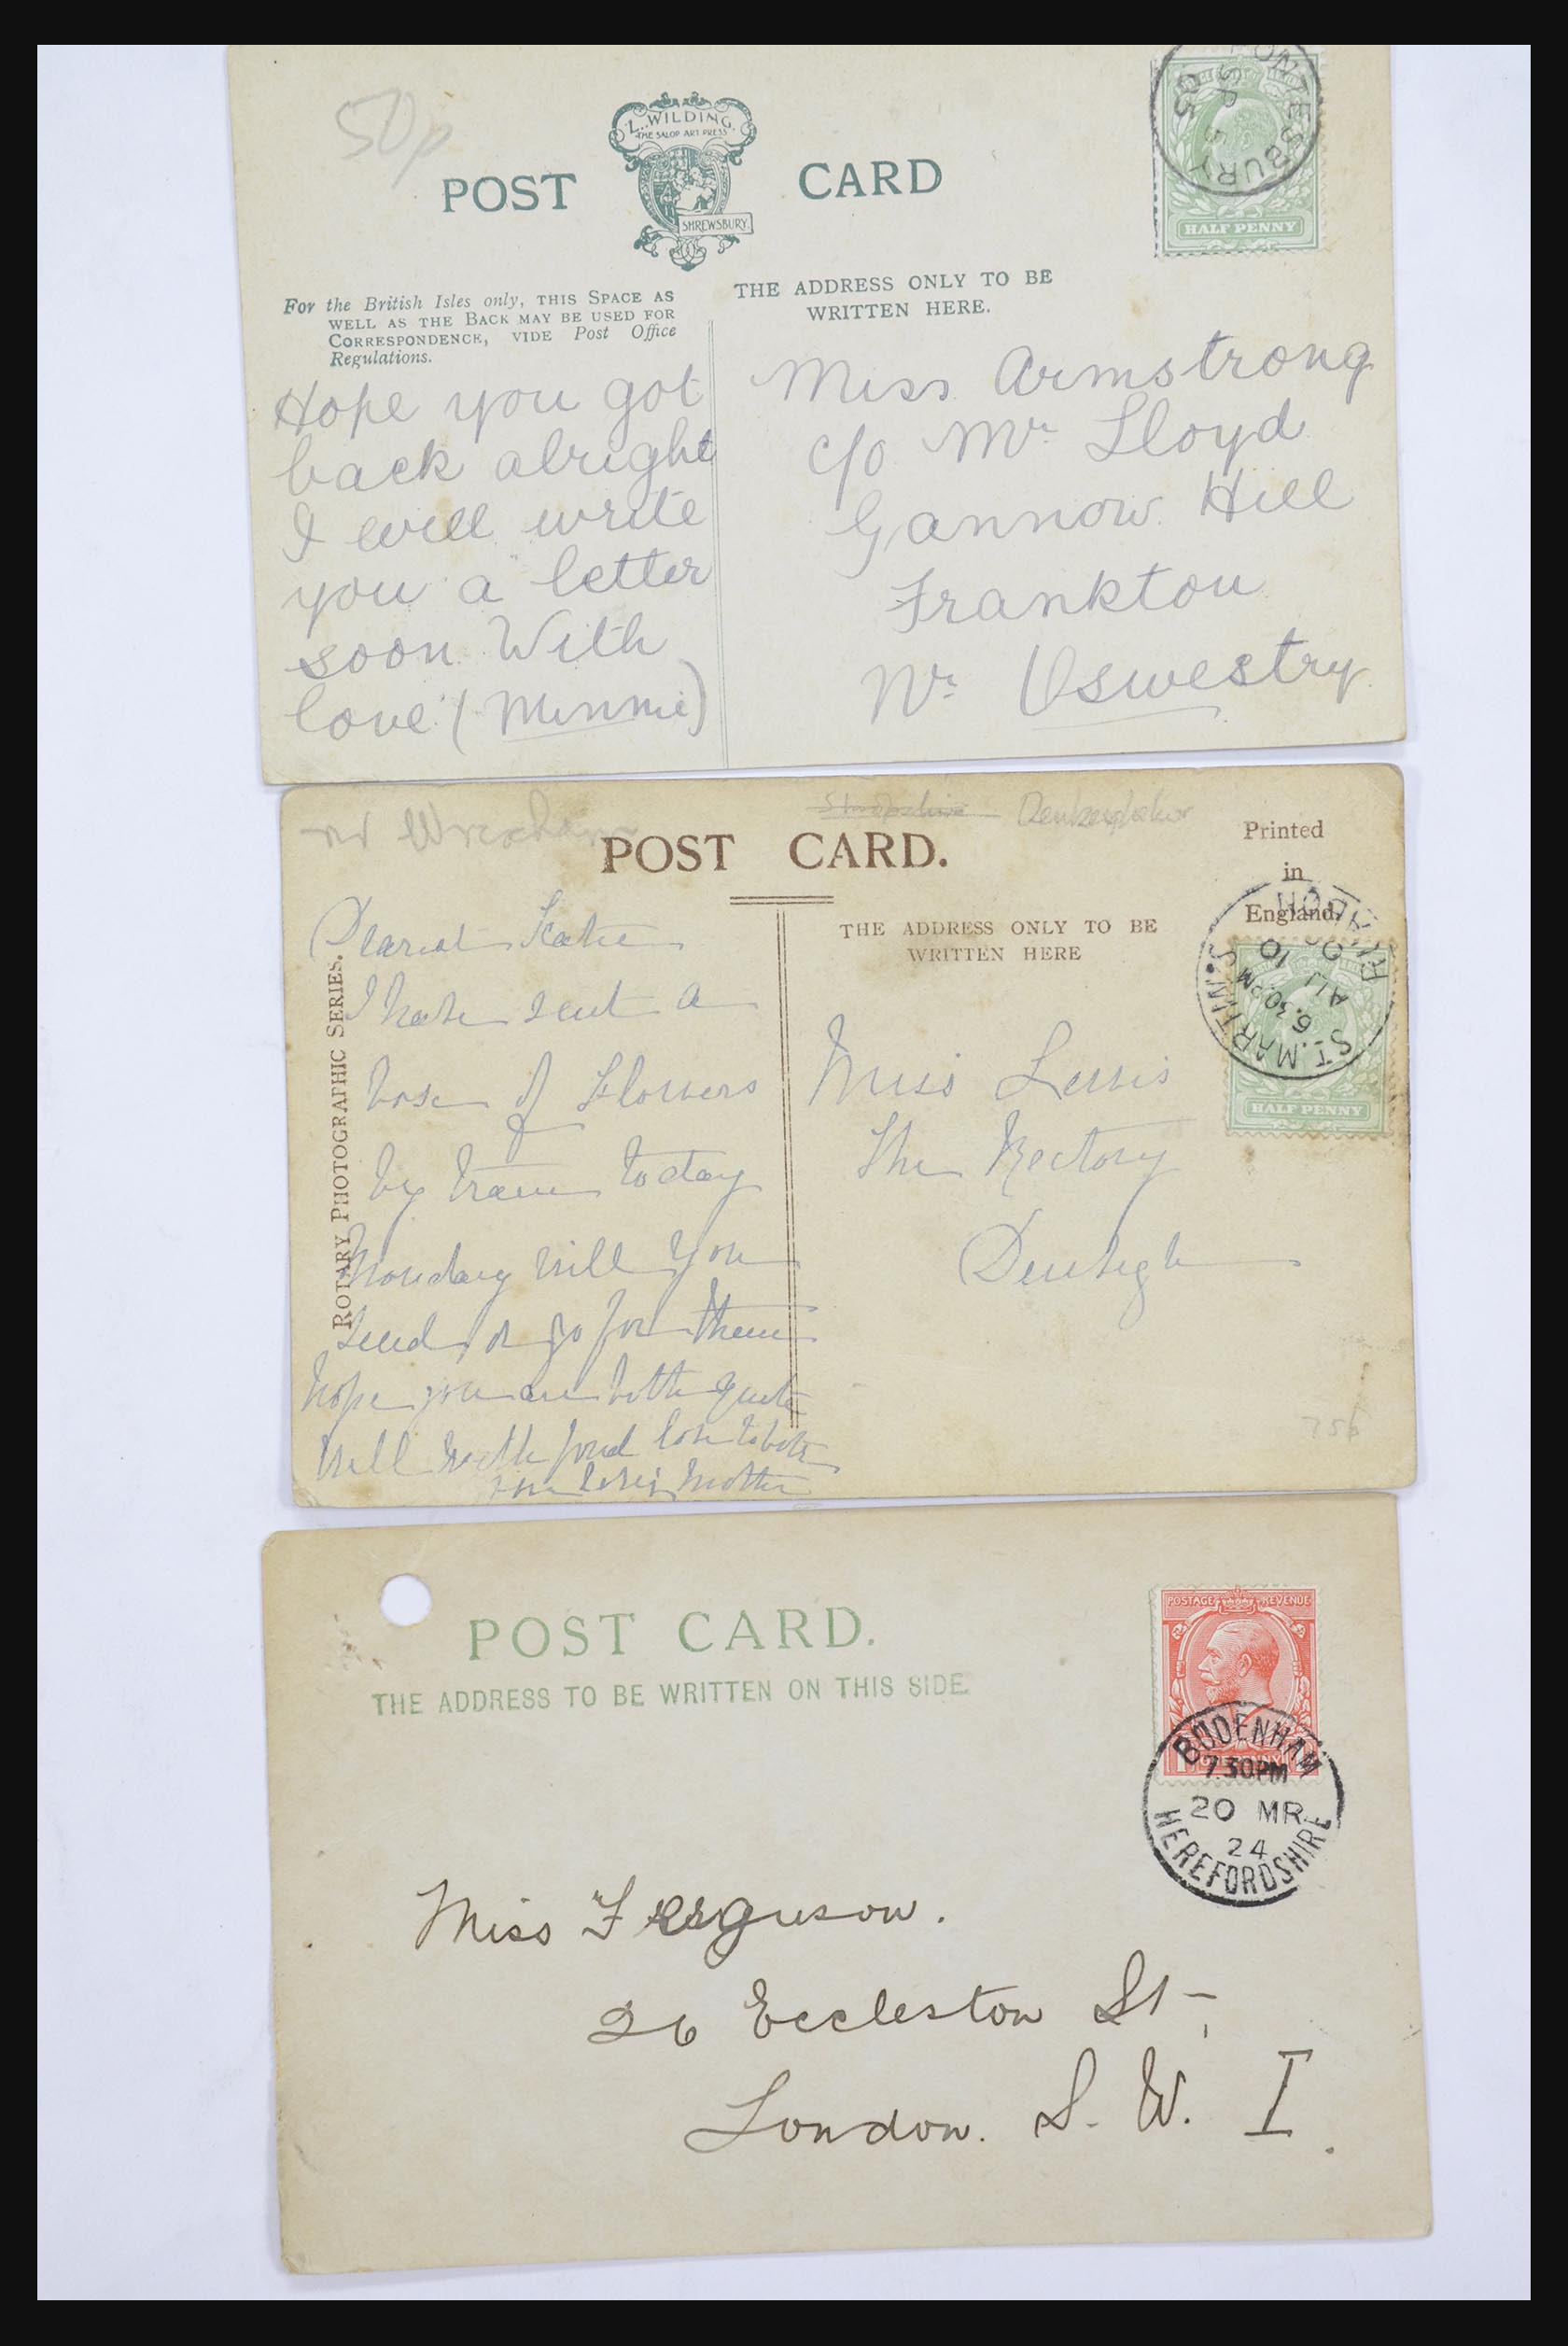 50p
L. WILDING,
THE SALOP ART PRESS
SHREWSBURY.
POST CARD
ONTESBURY
SP 5
05
HALF PENNY
For the British Isles only, THIS SPACE AS
WELL AS THE BACK MAY BE USED FOR
CORRESPONDENCE, VIDE Post Office
Regulations.
THE ADDRESS ONLY TO BE
WRITTEN HERE.
Hope you got
back alright
I will write
you a letter
soon With
love (Minnie)
Miss Armstrong
c/o Mr Lloyd
Gannow Hill
Frankton
Nr Oswestry
nr Wrexham
Shropshire
POST CARD.
Printed
in
England.
THE ADDRESS ONLY TO BE
WRITTEN HERE
ROTARY PHOTOGRAPHIC SERIES.
ST. MARTIN'S
6.30PM
AU
10
HALF PENNY
Dearest Katie
I have sent a
box of Flowers
by train today
Monday will you
send or go for them
hope you are both quite
well with fond love to both
Mother
Miss Lewis
The Rectory
Denbigh
75p
POST CARD.
THE ADDRESS TO BE WRITTEN ON THIS SIDE.
POSTAGE REVENUE
BODENHAM
7.30PM
20 MR
24
HEREFORDSHIRE
Miss Ferguson.
26 Eccleston St
London. S. W. I.